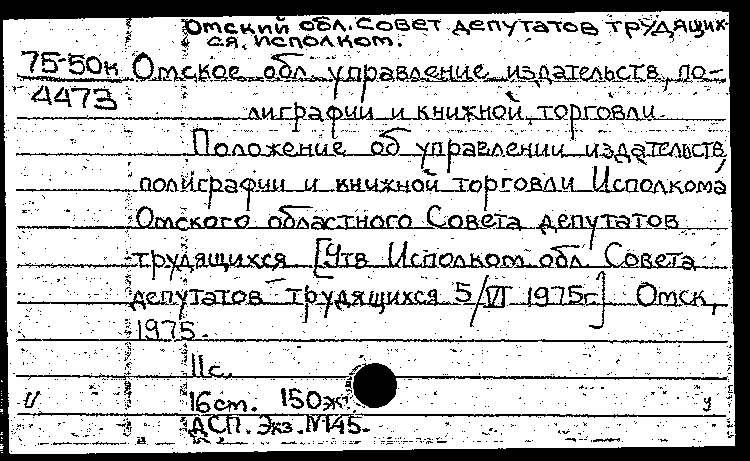 Омский обл. совет депутатов трудящих-
ся. исполком.
75-50к Омское обл. управление издательств, по-
4473
лиграфии и книжной торговли.
Положение об управлении издательств,
полиграфии и книжной торговли Исполкома
Омского областного Совета депутатов
трудящихся [Утв Исполком обл. Совета
депутатов трудящихся 5/VI 1975г.] Омск,
1975.
11с.
16см. 150эк
ДСП. Экз. №145.